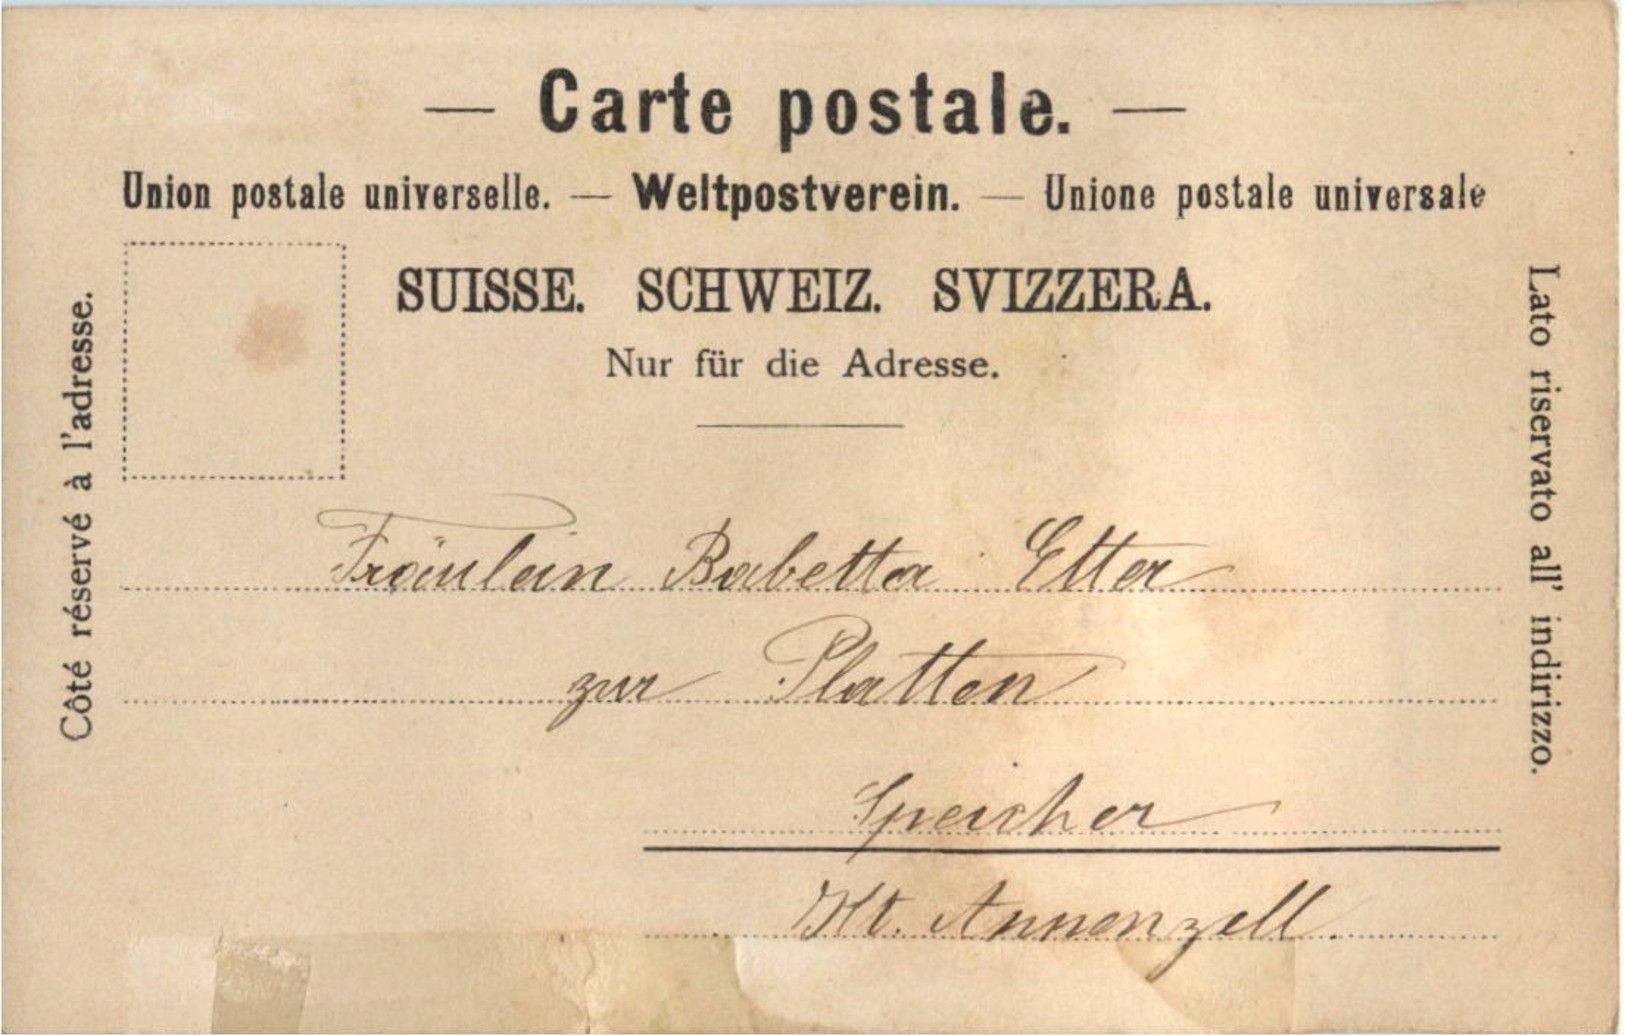 — Carte postale. —
Union postale universelle. — Weltpostverein. — Unione postale universale
SUISSE. SCHWEIZ. SVIZZERA.
Nur für die Adresse.
Côté réservé à l'adresse.
Lato riservato all' indirizzo.
Fräulein Babetta Etter
zur Platten
Speicher
Kt. Appenzell.